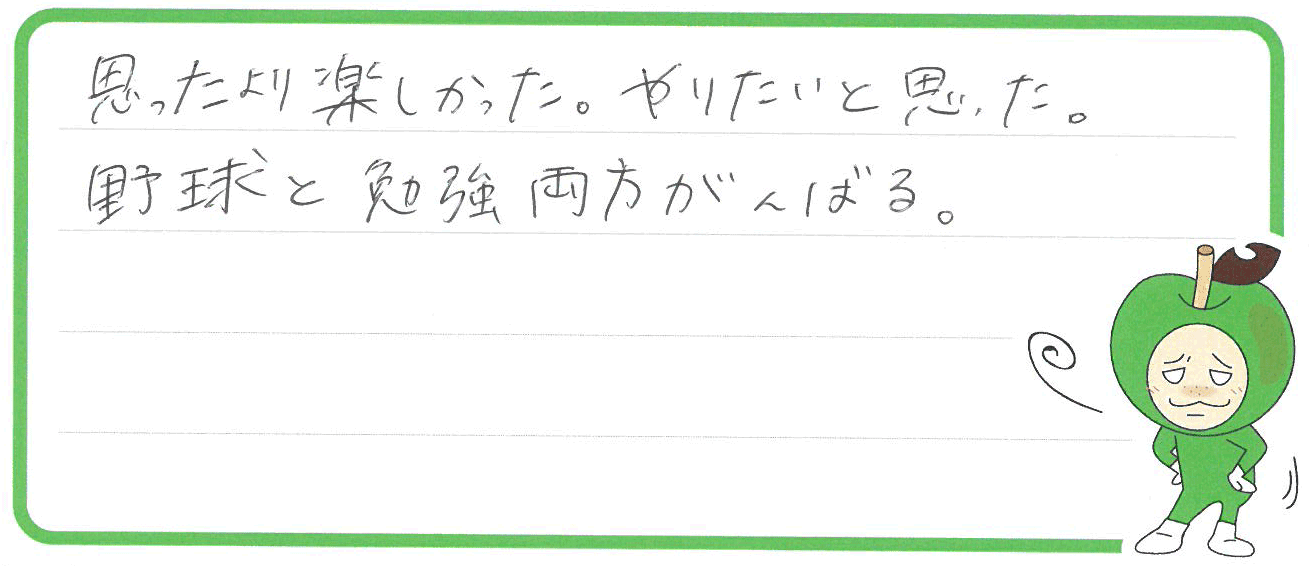 思ったより楽しかった。やりたいと思った。
野球と勉強両方がんばる。